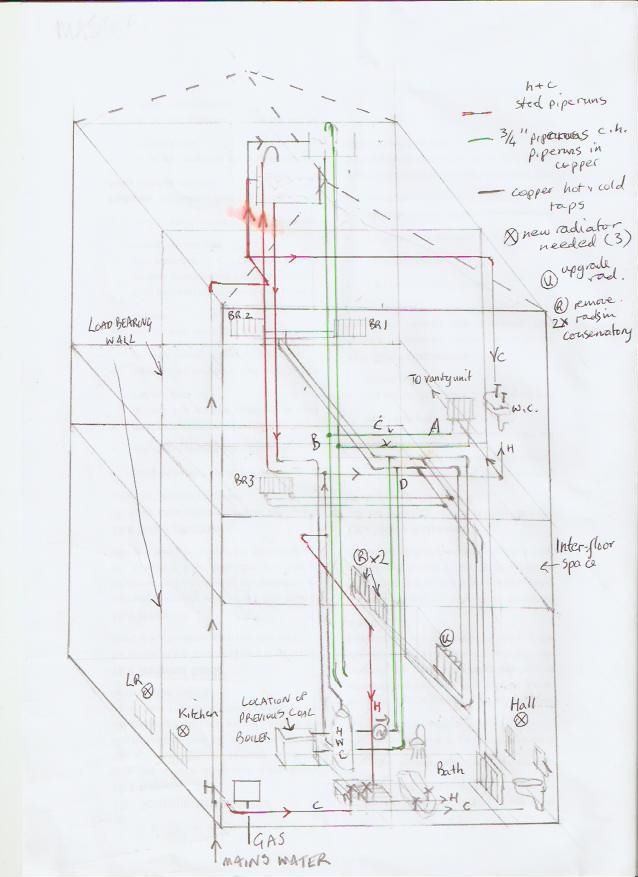 h+c
steel piperuns
3/4" piperuns c.h.
piperuns in
copper
copper hot & cold
taps
new radiator
needed (3)
U upgrade
rad.
R remove
2x rads in
conservatory
LOAD BEARING
WALL
BR.2
BR1
TO vanity unit
W.C.
C
C
A
B
H
D
BR3
R x2
Inter-floor
space
U
LR
Kitchen
LOCATION OF
PREVIOUS COAL
BOILER
H
W
C
H
Hall
Bath
H
C
C
GAS
MAINS WATER